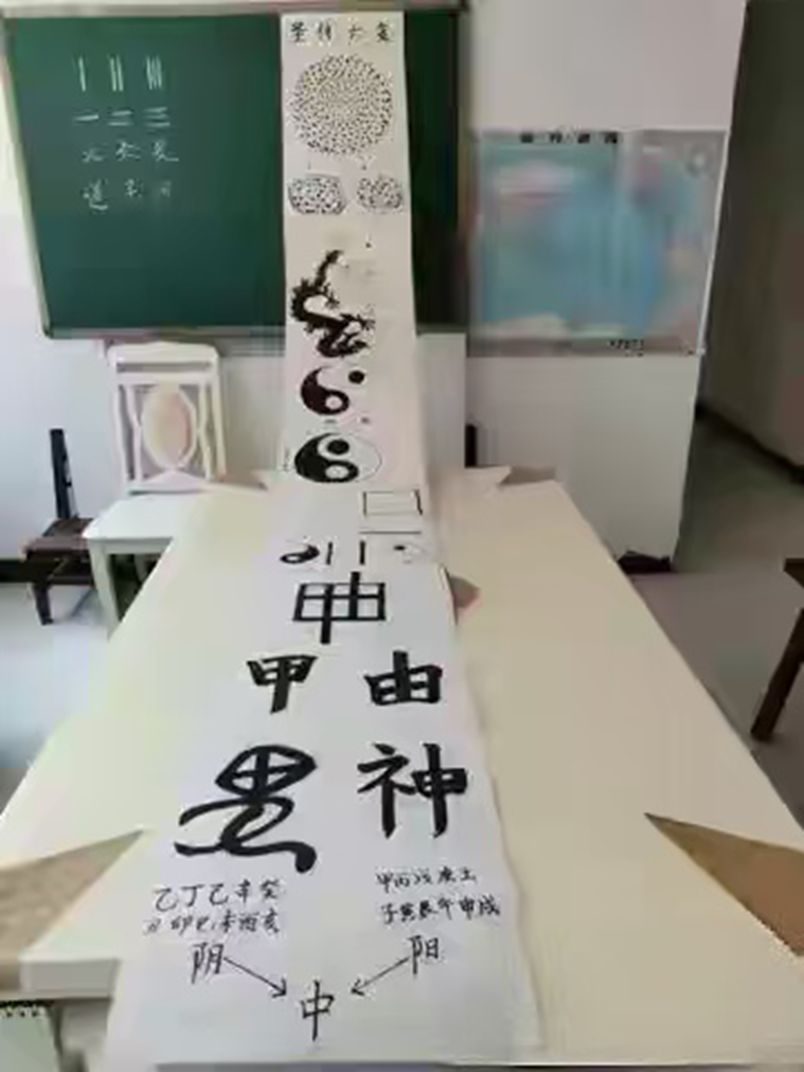 一 二 三
道
申
甲 由
神
乙丁己辛癸
丑卯巳未酉亥
甲丙戊庚壬
子寅辰午申戌
阴 阳
中